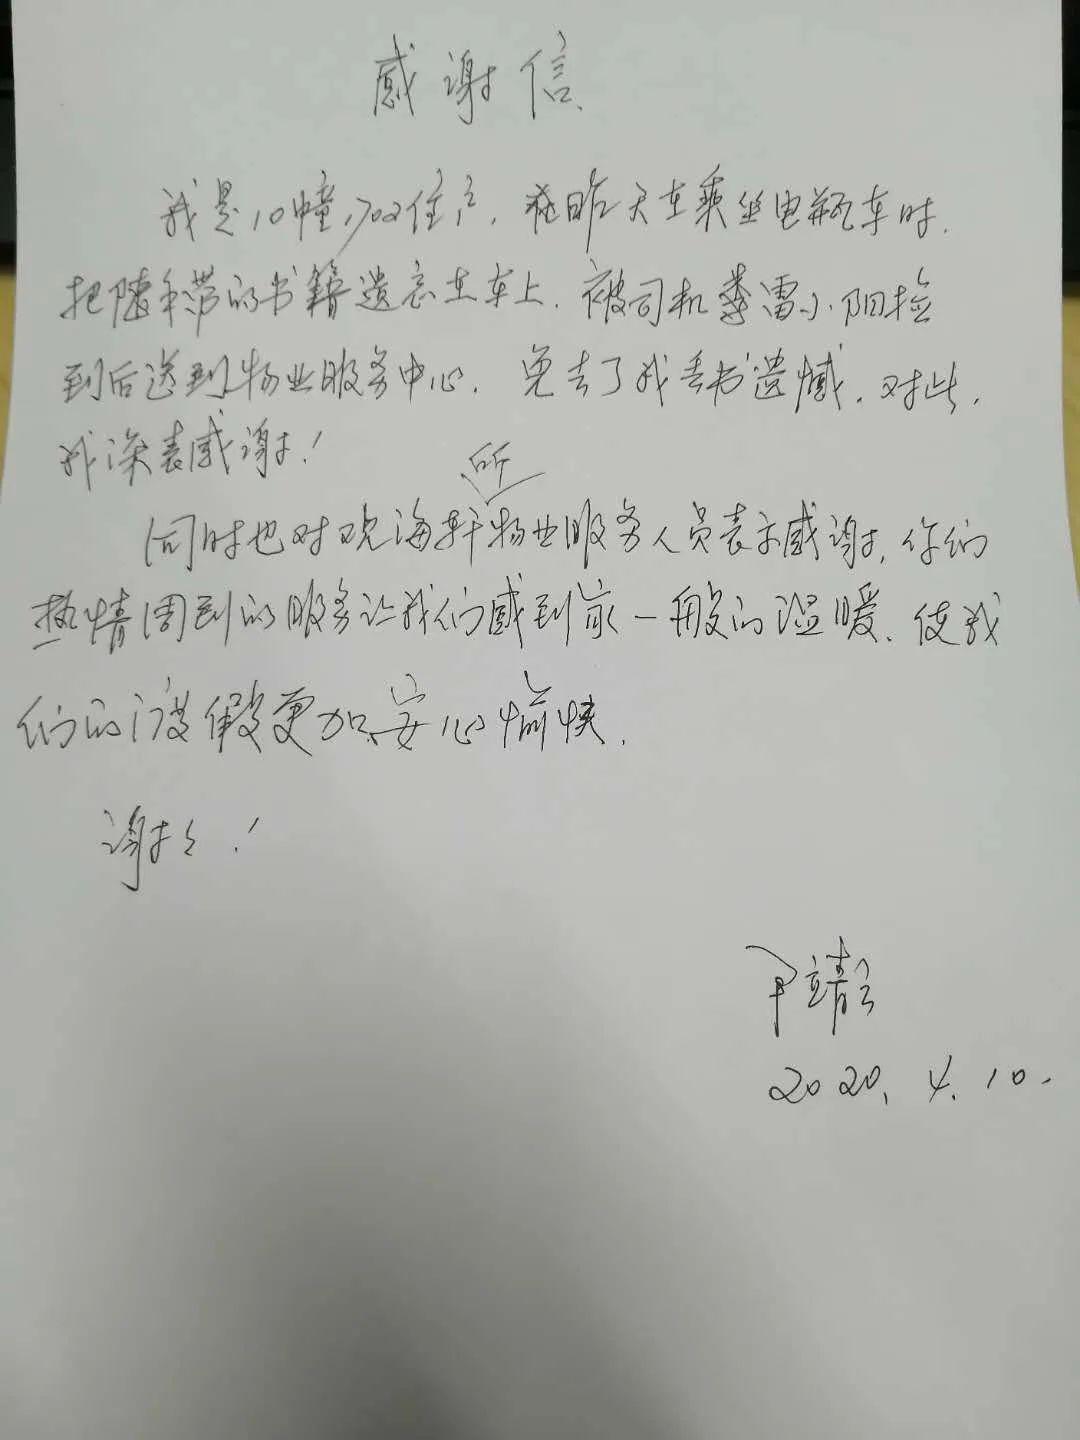 感谢信
我是10幢1702住户，在昨天在乘坐电瓶车时，
把随手带的书籍遗忘在车上，被司机雷小阳捡
到后送到物业服务中心，免去了我丢书遗憾，对此，
我深表感谢！
同时也对观海轩所物业服务人员表示感谢，你们
热情周到的服务让我们感到家一般的温暖，使我
们的度假更加安心愉快。
谢谢！
2020.4.10.